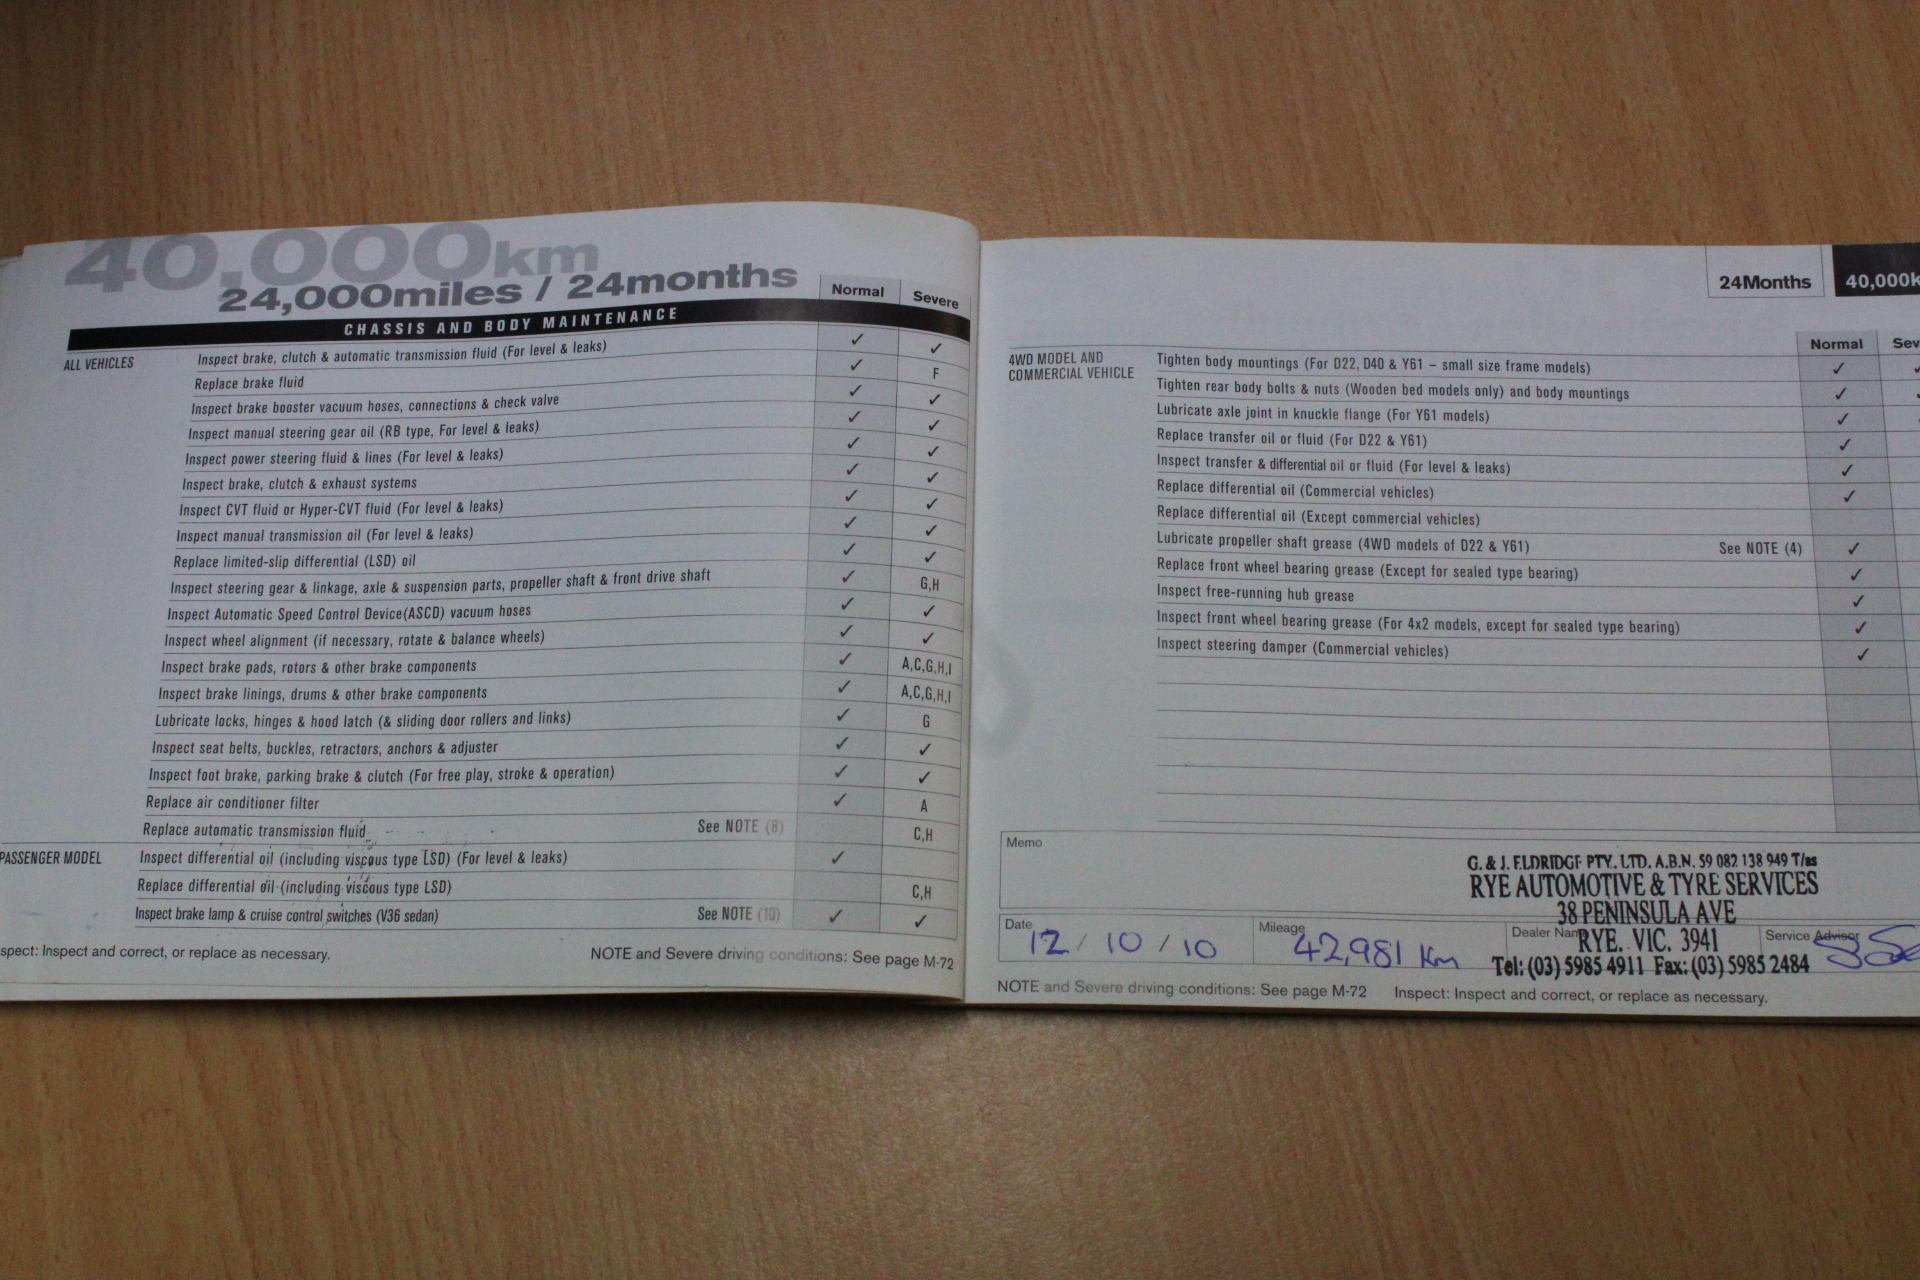 40,000km
24,000miles / 24months
Normal Severe
CHASSIS AND BODY MAINTENANCE
ALL VEHICLES Inspect brake, clutch & automatic transmission fluid (For level & leaks) ✓ ✓
Replace brake fluid ✓ F
Inspect brake booster vacuum hoses, connections & check valve ✓ ✓
Inspect manual steering gear oil (RB type, For level & leaks) ✓ ✓
Inspect power steering fluid & lines (For level & leaks) ✓ ✓
Inspect brake, clutch & exhaust systems ✓ ✓
Inspect CVT fluid or Hyper-CVT fluid (For level & leaks) ✓ ✓
Inspect manual transmission oil (For level & leaks) ✓ ✓
Replace limited-slip differential (LSD) oil ✓ ✓
Inspect steering gear & linkage, axle & suspension parts, propeller shaft & front drive shaft ✓ G,H
Inspect Automatic Speed Control Device(ASCD) vacuum hoses ✓ ✓
Inspect wheel alignment (if necessary, rotate & balance wheels) ✓ ✓
Inspect brake pads, rotors & other brake components ✓ A,C,G,H,I
Inspect brake linings, drums & other brake components ✓ A,C,G,H,I
Lubricate locks, hinges & hood latch (& sliding door rollers and links) ✓ G
Inspect seat belts, buckles, retractors, anchors & adjuster ✓ ✓
Inspect foot brake, parking brake & clutch (For free play, stroke & operation) ✓ ✓
Replace air conditioner filter ✓ A
Replace automatic transmission fluid See NOTE (8) C,H
PASSENGER MODEL Inspect differential oil (including viscous type LSD) (For level & leaks) ✓
Replace differential oil (including viscous type LSD) C,H
Inspect brake lamp & cruise control switches (V36 sedan) See NOTE (10) ✓ ✓
spect: Inspect and correct, or replace as necessary. NOTE and Severe driving conditions: See page M-72
24Months 40,000k
Normal Sev
4WD MODEL AND
COMMERCIAL VEHICLE
Tighten body mountings (For D22, D40 & Y61 – small size frame models) ✓
Tighten rear body bolts & nuts (Wooden bed models only) and body mountings ✓
Lubricate axle joint in knuckle flange (For Y61 models) ✓
Replace transfer oil or fluid (For D22 & Y61) ✓
Inspect transfer & differential oil or fluid (For level & leaks) ✓
Replace differential oil (Commercial vehicles) ✓
Replace differential oil (Except commercial vehicles)
Lubricate propeller shaft grease (4WD models of D22 & Y61) See NOTE (4) ✓
Replace front wheel bearing grease (Except for sealed type bearing) ✓
Inspect free-running hub grease ✓
Inspect front wheel bearing grease (For 4x2 models, except for sealed type bearing) ✓
Inspect steering damper (Commercial vehicles) ✓
Memo
G. & J. ELDRIDGE PTY. LTD. A.B.N. 59 082 138 949 T/as
RYE AUTOMOTIVE & TYRE SERVICES
38 PENINSULA AVE
RYE. VIC. 3941
Tel: (03) 5985 4911 Fax: (03) 5985 2484
Date 12 / 10 / 10 Mileage 42,981 Km Dealer Name Service Advisor
NOTE and Severe driving conditions: See page M-72 Inspect: Inspect and correct, or replace as necessary.